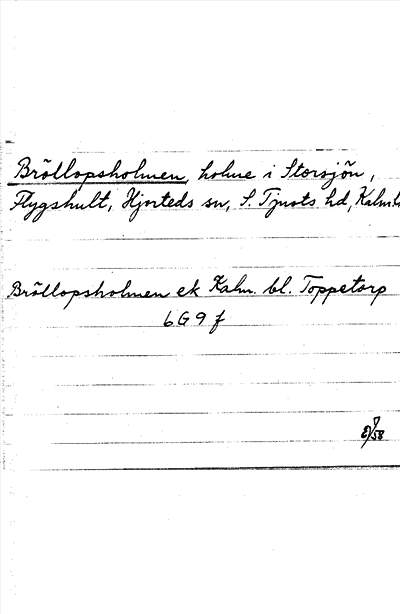 Bröllopsholmen, holme i Storsjön,
Flygshult, Hjorteds sn, S. Tjusts hd, Kalm. l
Bröllopsholmen ek Kalm. bl. Toppetorp
6G9f